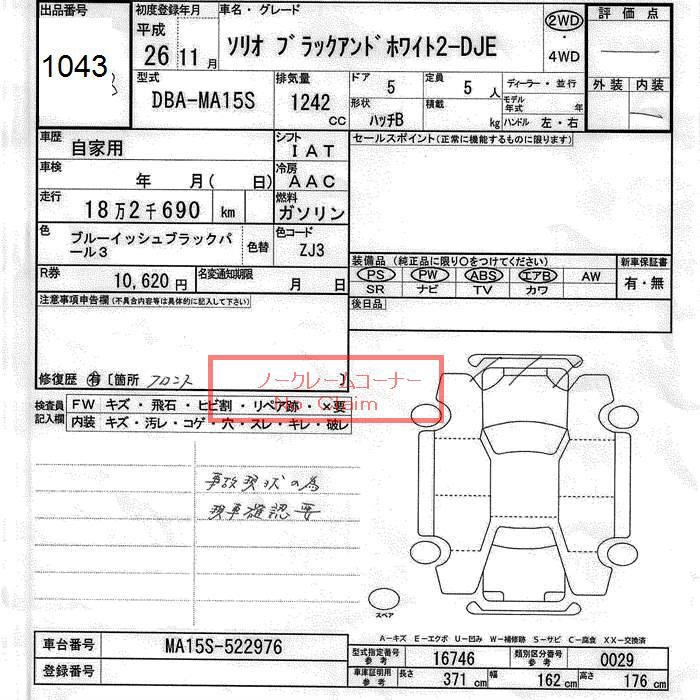 出品番号
1043
初度登録年月
平成
26 11月
車名・グレード
ソリオ ブラックアンドホワイト2-DJE
2WD
・
4WD
評価点
外装 内装
型式
DBA-MA15S
排気量
1242
CC
ドア
5
定員
5 人
形状
ハッチB
積載
kg
ディーラー・並行
モデル
年式
年
ハンドル 左・右
車歴
自家用
シフト
IAT
車検
年 月( 日)
冷房
AAC
走行
18万2千690 km
燃料
ガソリン
色
ブルーイッシュブラックパ
ール3
色替
色コード
ZJ3
R券
10,620円
名変通知期限
月 日
セールスポイント(正常に機能するものに限ります)
装備品 (純正品に限り○をつけてください)
PS PW ABS エアB AW
SR ナビ TV カワ
新車保証書
有・無
後日品
注意事項申告欄(不具合内容等は具体的に記入して下さい)
修復歴 有 〔箇所 フロント 〕
ノークレームコーナー
No Claim
検査員
記入欄
FW キズ・飛石・ヒビ割・リペア跡・×要
内装 キズ・汚レ・コゲ・穴・スレ・キレ・破レ
事故現状の為
現車確認要
スペア
A-キズ E-エクボ U-凹み W-補修跡 S-サビ C-腐食 XX-交換済
車台番号
MA15S-522976
登録番号
型式指定番号
参考
16746
類別区分番号
参考
0029
車庫証明用
参考
長さ
371 cm
幅
162 cm
高さ
176 cm